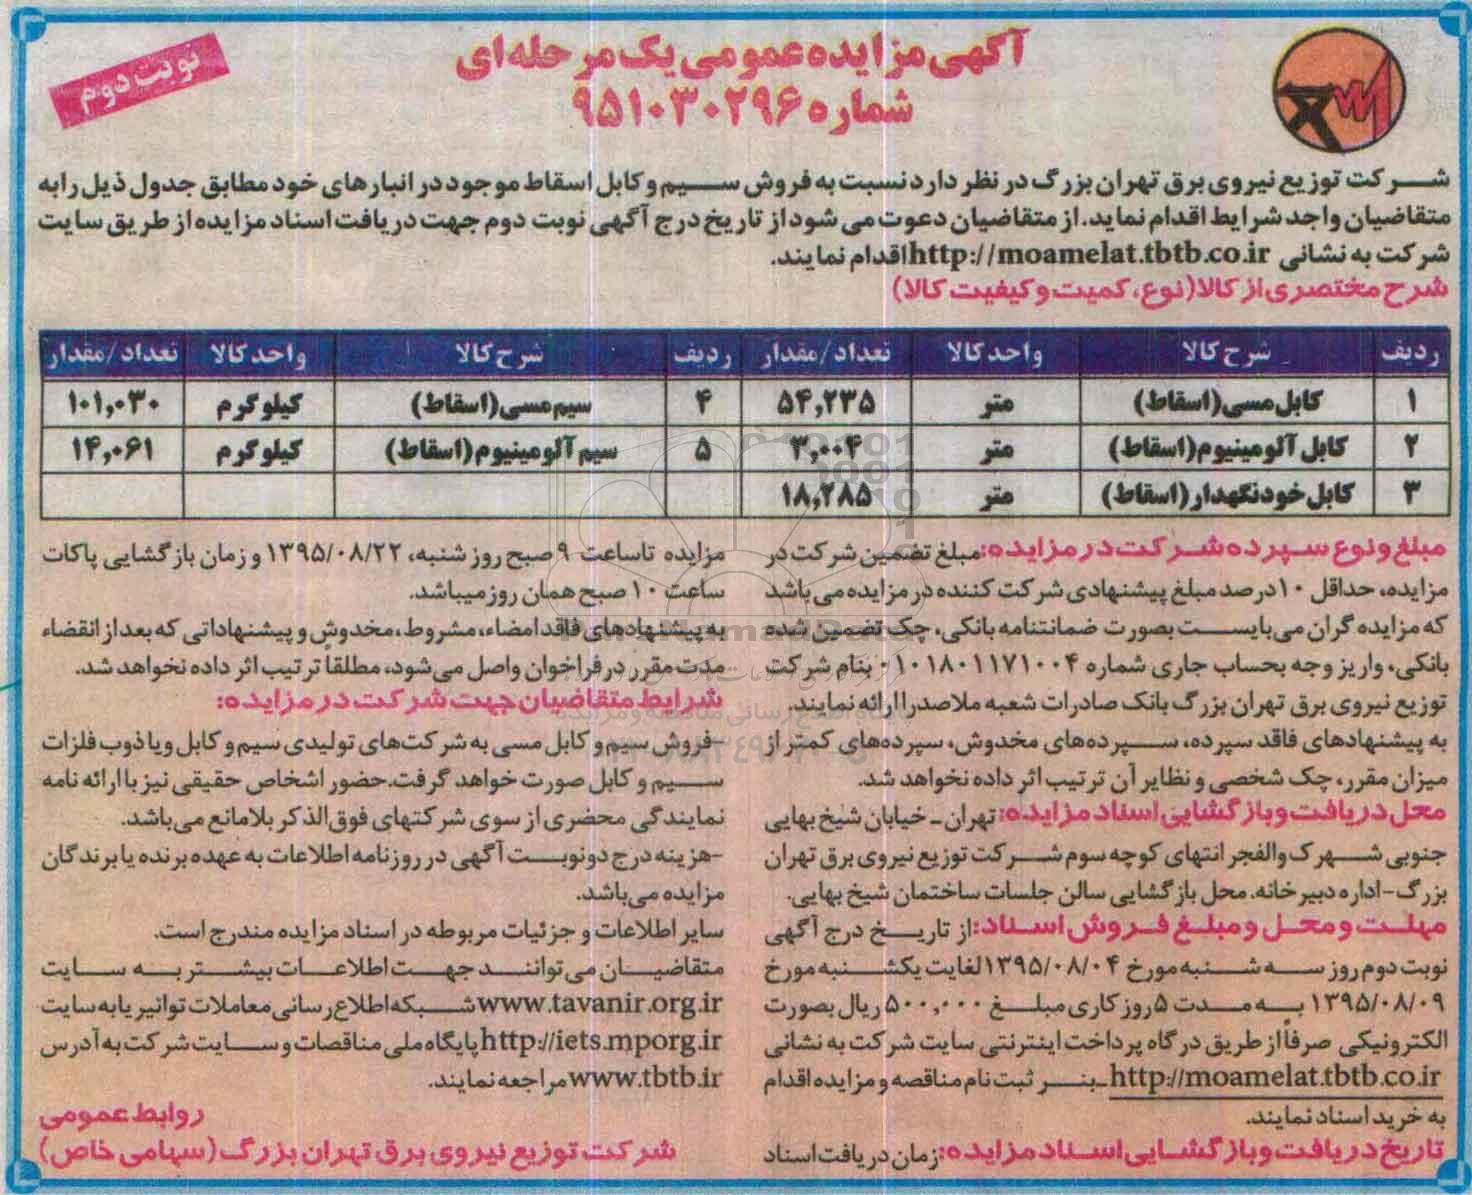 آگهی مزایده عمومی یک مرحله‌ای
شماره ۹۵۱۰۳۰۲۹۶
نوبت دوم
شرکت توزیع نیروی برق تهران بزرگ در نظر دارد نسبت به فروش سیم و کابل اسقاط موجود در انبارهای خود مطابق جدول ذیل را به
متقاضیان واجد شرایط اقدام نماید. از متقاضیان دعوت می شود از تاریخ درج آگهی نوبت دوم جهت دریافت اسناد مزایده از طریق سایت
شرکت به نشانی http://moamelat.tbtb.co.ir اقدام نمایند.
شرح مختصری از کالا (نوع، کمیت و کیفیت کالا)
ردیف شرح کالا واحد کالا تعداد/مقدار ردیف شرح کالا واحد کالا تعداد/مقدار
۱ کابل مسی (اسقاط) متر ۵۴,۲۳۵ ۴ سیم مسی (اسقاط) کیلوگرم ۱۰۱,۰۳۰
۲ کابل آلومینیوم (اسقاط) متر ۳,۰۰۴ ۵ سیم آلومینیوم (اسقاط) کیلوگرم ۱۴,۰۶۱
۳ کابل خودنگهدار (اسقاط) متر ۱۸,۲۸۵
مبلغ و نوع سپرده شرکت در مزایده: مبلغ تضمین شرکت در
مزایده، حداقل ۱۰ درصد مبلغ پیشنهادی شرکت کننده در مزایده می باشد
که مزایده گران می‌بایست بصورت ضمانتنامه بانکی، چک تضمین شده
بانکی، واریز وجه بحساب جاری شماره ۰۱۰۱۸۰۱۱۷۱۰۰۴ بنام شرکت
توزیع نیروی برق تهران بزرگ بانک صادرات شعبه ملاصدرا ارائه نمایند.
به پیشنهادهای فاقد سپرده، سپرده‌های مخدوش، سپرده‌های کمتر از
میزان مقرر، چک شخصی و نظایر آن ترتیب اثر داده نخواهد شد.
محل دریافت و بازگشایی اسناد مزایده: تهران ـ خیابان شیخ بهایی
جنوبی شهرک والفجر انتهای کوچه سوم شرکت توزیع نیروی برق تهران
بزرگ-اداره دبیرخانه. محل بازگشایی سالن جلسات ساختمان شیخ بهایی.
مهلت و محل و مبلغ فروش اسناد: از تاریخ درج آگهی
نوبت دوم روز سه شنبه مورخ ۱۳۹۵/۰۸/۰۴ لغایت یکشنبه مورخ
۱۳۹۵/۰۸/۰۹ به مدت ۵ روز کاری مبلغ ۵۰۰,۰۰۰ ریال بصورت
الکترونیکی صرفاً از طریق درگاه پرداخت اینترنتی سایت شرکت به نشانی
http://moamelat.tbtb.co.ir ـ بنر ثبت نام مناقصه و مزایده اقدام
به خرید اسناد نمایند.
تاریخ دریافت و بازگشایی اسناد مزایده: زمان دریافت اسناد
مزایده تا ساعت ۹ صبح روز شنبه، ۱۳۹۵/۰۸/۲۲ و زمان بازگشایی پاکات
ساعت ۱۰ صبح همان روز میباشد.
به پیشنهادهای فاقد امضاء، مشروط، مخدوش و پیشنهاداتی که بعد از انقضاء
مدت مقرر در فراخوان واصل می شود، مطلقا ترتیب اثر داده نخواهد شد.
شرایط متقاضیان جهت شرکت در مزایده:
-فروش سیم و کابل مسی به شرکت‌های تولیدی سیم و کابل و یا ذوب فلزات
سیم و کابل صورت خواهد گرفت. حضور اشخاص حقیقی نیز با ارائه نامه
نمایندگی محضری از سوی شرکتهای فوق الذکر بلامانع می باشد.
-هزینه درج دو نوبت آگهی در روزنامه اطلاعات به عهده برنده یا برندگان
مزایده می باشد.
سایر اطلاعات و جزئیات مربوطه در اسناد مزایده مندرج است.
متقاضیان می توانند جهت اطلاعات بیشتر به سایت
www.tavanir.org.ir شبکه اطلاع رسانی معاملات توانیر یا به سایت
http://iets.mporg.ir پایگاه ملی مناقصات و سایت شرکت به آدرس
www.tbtb.ir مراجعه نمایند.
روابط عمومی
شرکت توزیع نیروی برق تهران بزرگ (سهامی خاص)